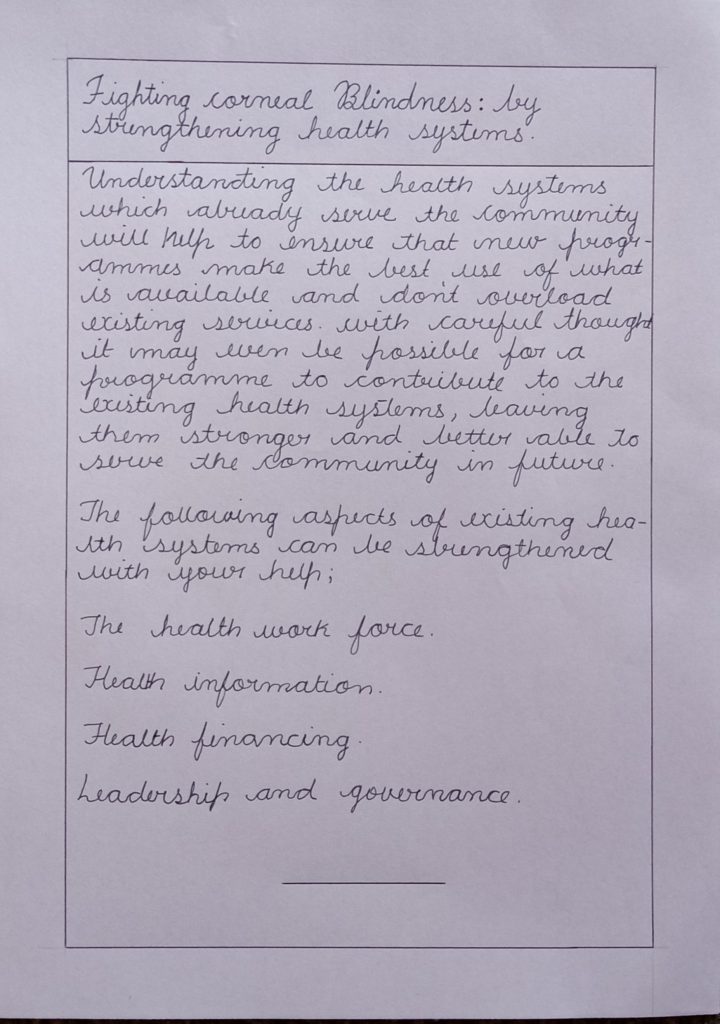 Fighting corneal Blindness: by
strengthening health systems.
Understanding the health systems
which already serve the community
will help to ensure that new progr-
ammes make the best use of what
is available and don't overload
existing services. with careful thought
it may even be possible for a
programme to contribute to the
existing health systems, leaving
them stronger and better able to
serve the community in future.
The following aspects of existing hea-
lth systems can be strengthened
with your help;
The health work force.
Health information.
Health financing.
Leadership and governance.